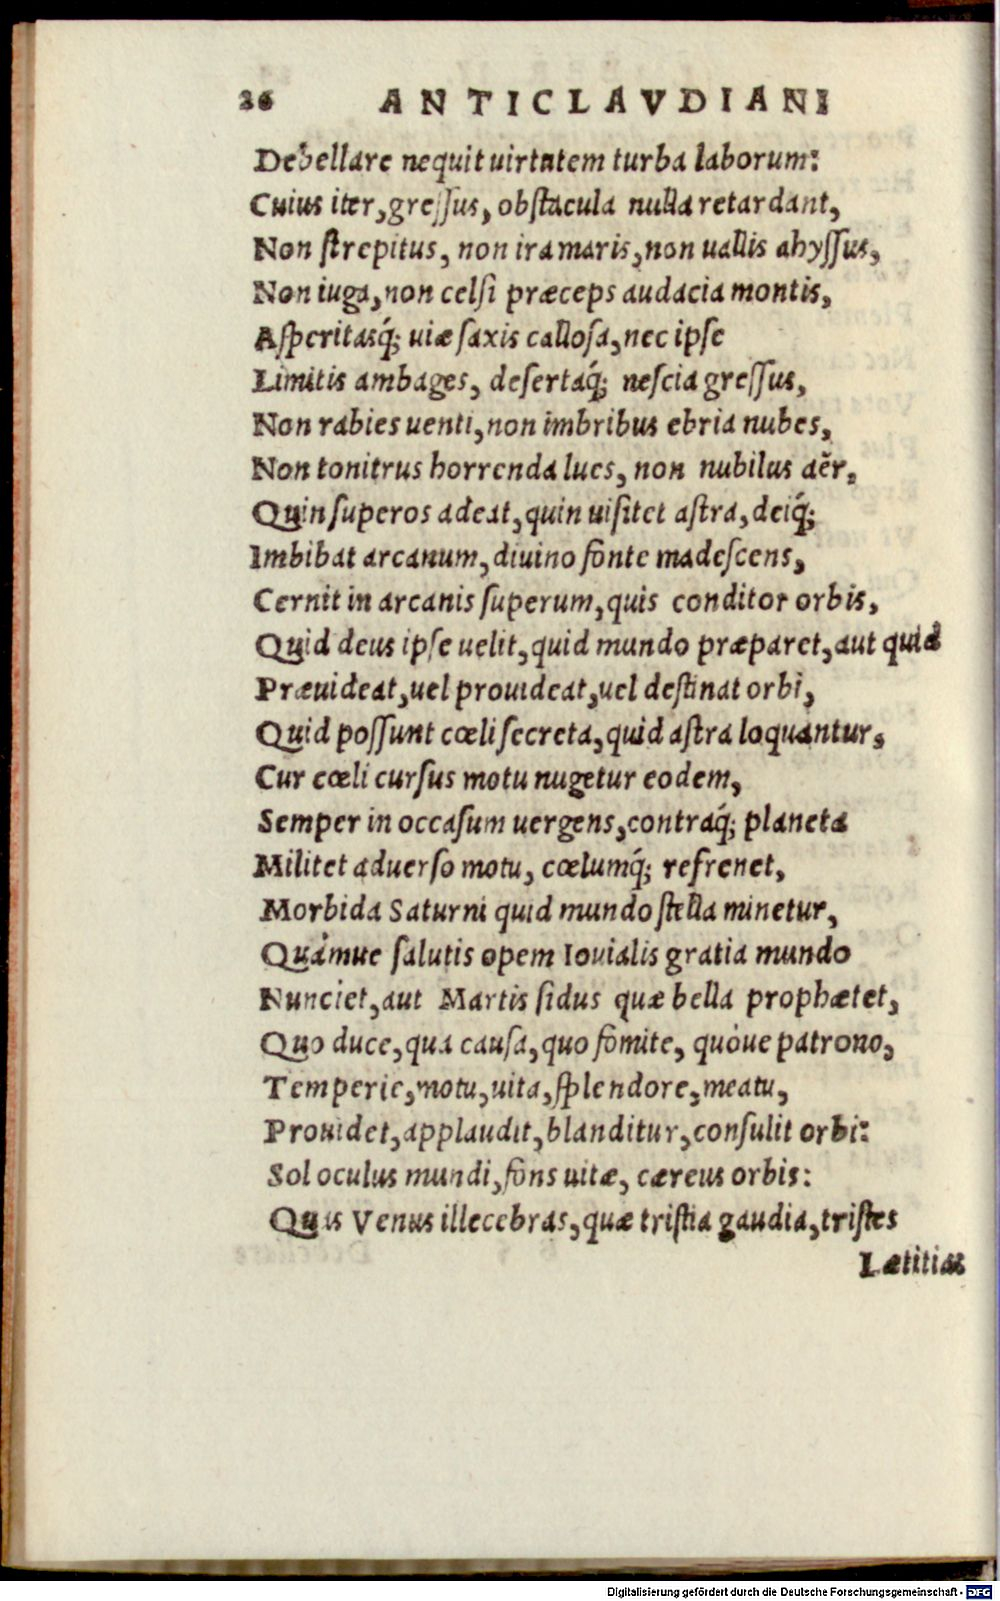 26 ANTICLAVDIANI
Debellare nequit uirtutem turba laborum:
Cuius iter, greſſus, obſtacula nulla retardant,
Non ſtrepitus, non ira maris, non uallis abyſſus,
Non iuga, non celſi præceps audacia montis,
Aſperitasq́; uiæ ſaxis calloſa, nec ipſe
Limitis ambages, deſertaq́; neſcia greſſus,
Non rabies uenti, non imbribus ebria nubes,
Non tonitrus horrenda lues, non nubilus aër,
Quin ſuperos adeat, quin uiſitet aſtra, deiq́;
Imbibat arcanum, diuino fonte madeſcens,
Cernit in arcanis ſuperum, quis conditor orbis,
Quid deus ipſe uelit, quid mundo præparet, aut quid
Præuideat, uel prouideat, uel deſtinat orbi,
Quid poſſunt cœli ſecreta, quid aſtra loquantur,
Cur cœli curſus motu nugetur eodem,
Semper in occaſum uergens, contraq́; planeta
Militet aduerſo motu, cœlumq́; refrenet,
Morbida Saturni quid mundo ſtella minetur,
Quámue ſalutis opem Iouialis gratia mundo
Nunciet, aut Martis ſidus quæ bella prophætet,
Quo duce, qua cauſa, quo fomite, quóue patrono,
Temperie, motu, uita, ſplendore, meatu,
Prouidet, applaudit, blanditur, conſulit orbi:
Sol oculus mundi, fons uitæ, cæreus orbis:
Quis Venus illecebras, quæ triſtia gaudia, triſtes
Lætitias
Digitalisierung gefördert durch die Deutsche Forschungsgemeinschaft - DFG